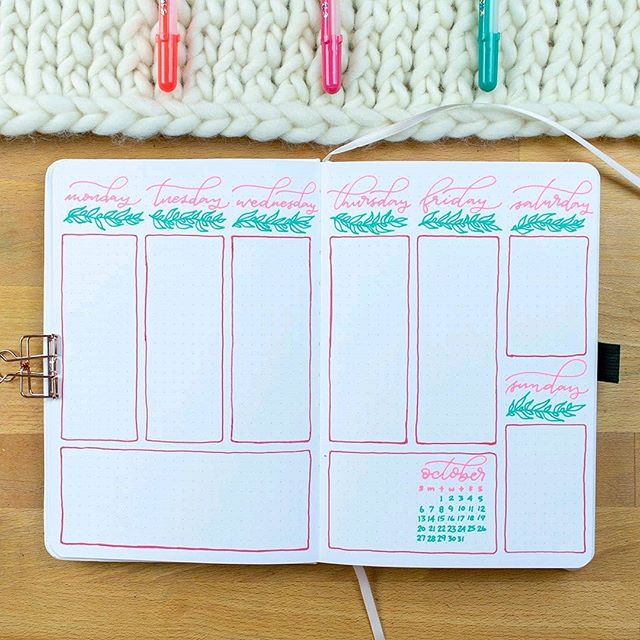 monday tuesday wednesday thursday friday saturday
sunday
october
s m t w t f s
1 2 3 4 5
6 7 8 9 10 11 12
13 14 15 16 17 18 19
20 21 22 23 24 25 26
27 28 29 30 31